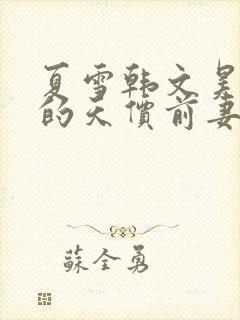 夏雪韩文昊
的天價前妻
蘇全勇